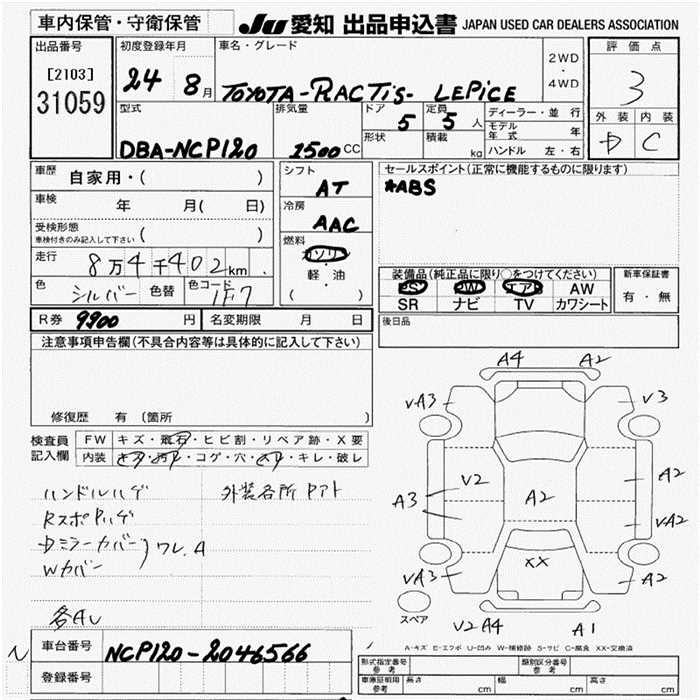 車内保管・守衛保管 JU 愛知 出品申込書 JAPAN USED CAR DEALERS ASSOCIATION
出品番号 初度登録年月 車名・グレード 評価点
[2103] 24 8月 TOYOTA-RACTIS- LEPICE 2WD・4WD 3
31059
型式 排気量 ドア 定員 ディーラー・並行 外装 内装
DBA-NCP120 1500CC 5 5人 モデル年式 年 D C
形状 積載 kg ハンドル 左・右
車歴 自家用・( ) シフト AT セールスポイント(正常に機能するものに限ります)
*ABS
車検 年 月( 日) 冷房 AAC
受検形態 ( )
車検付きのみ記入して下さい
走行 8万4千402km 燃料 ガソリン・軽油 ( )
装備品(純正品に限り○をつけてください) 新車保証書
色 シルバー 色替 色コード 1F7 PS PW エアB AW 有・無
SR ナビ TV カワシート
R券 9900 円 名変期限 月 日 後日品
注意事項申告欄(不具合内容等は具体的に記入して下さい)
修復歴 有 (箇所
検査員記入欄 FW キズ・飛石・ヒビ割・リペア跡・X要
内装 キズ・汚レ・コゲ・穴・スレ・キレ・破レ
ハンドルハゲ 外装各所 PアT
RスポPハゲ
Dミラーカバー
Wカバー ワレ.A
各AU
A4 A2
VA3 V3
V2 A2
A3 A2 VA2
XX
VA3 A2
スペア V2 A4 A1
A-キズ E-エクボ U-凹み W-補修跡 S-サビ C-腐食 XX-交換済
車台番号 NCP120-2046566
登録番号
型式指定番号 参考 類別区分番号 参考
車庫証明用 参考 長さ cm 幅 cm 高さ cm